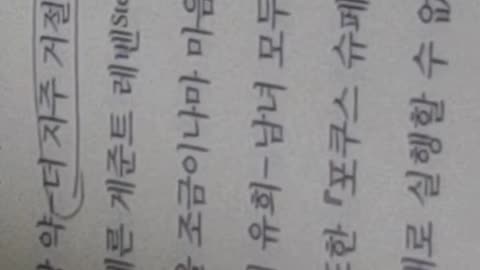 약-더 자주 거절
른 게준트 레벤Ste
조금이나마 마음
유희-남녀 모두
한 『포쿠스 슈페
로 실행할 수 없